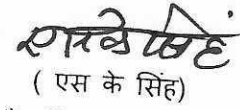 एस के सिंह
( एस के सिंह)